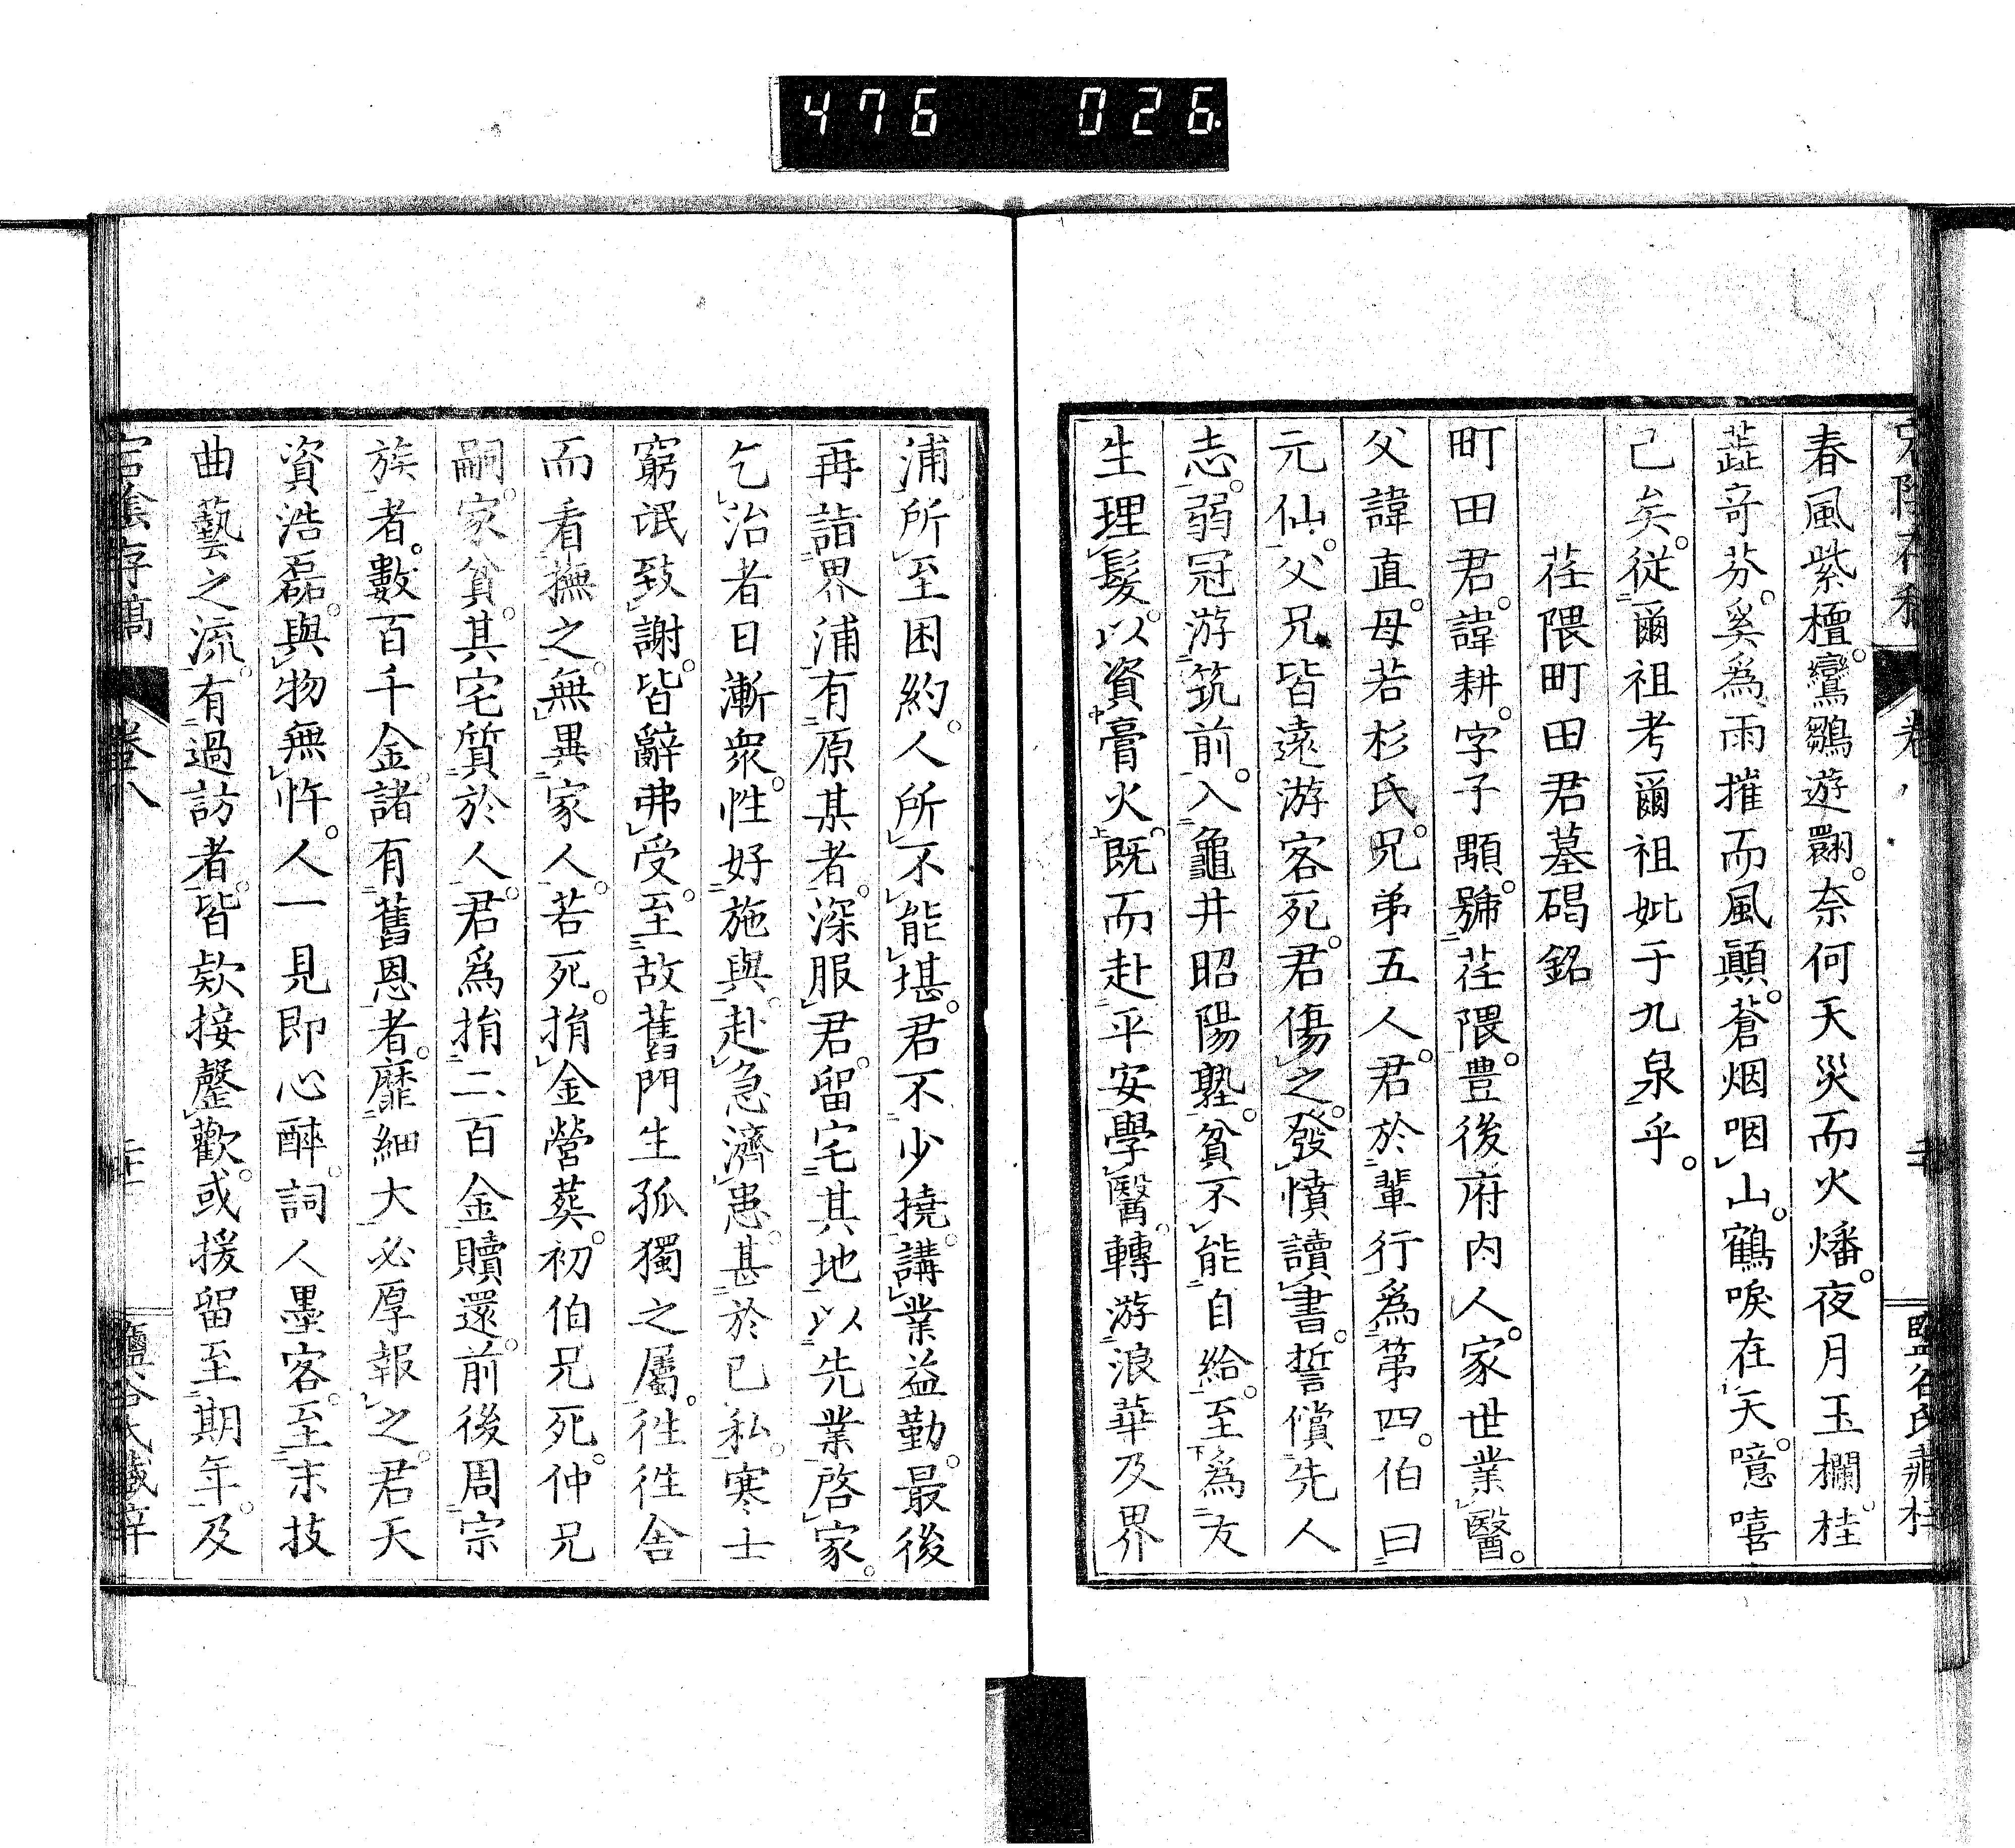 476 026
春風紫檀。鸞鶵遊翾。奈何天災而火燔。夜月玉欄。桂
蕋竒芬。奚爲雨摧而風顚。蒼烟咽山。鶴唳在天。噫嘻
已矣。従爾祖考爾祖妣于九泉乎。
荏隈町田君墓碣銘
町田君。諱耕。字子顒。號荏隈。豊後府内人。家世業醫。
父諱直。母若杉氏。兄弟五人。君於輩行爲第四。伯曰
元仙。父兄皆遠游客死。君傷之。發憤讀書。誓償先人
志。弱冠游筑前。入龜井昭陽塾。貧不能自給。至爲友
生理髮。以資膏火。既而赴平安學醫。轉游浪華及界
浦所至困約。人所不能堪。君不少撓。講業益勤。最後
再詣界浦有原某者。深服君。留宅其地以先業啓家。
乞治者日漸衆。性好施與。赴急濟患。甚於己私。寒士
窮氓致謝。皆辭弗受。至故舊門生孤獨之屬。徃徃舍
而看撫之。無異家人。若死。捐金營葬。初伯兄死。仲兄
嗣家。貧。其宅質於人。君爲捐二百金贖還。前後周宗
族者。數百千金。諸有舊恩者。靡細大必厚報之。君天
資浩磊。與物無忤。人一見即心醉。詞人墨客。至末技
曲藝之流。有過訪者。皆欵接罄歡。或援留至期年。及
宕陰存稿 卷八 鹽谷氏藏梓